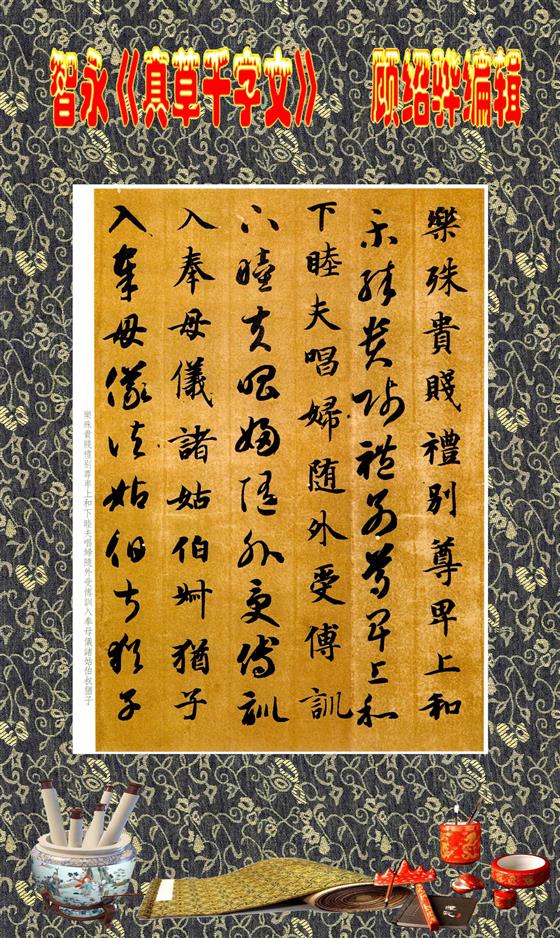 智永《真草千字文》 顾绍骅编辑
樂殊貴賤禮別尊卑上和
樂殊貴賤禮別尊卑上和
下睦夫唱婦随外受傅訓
下睦夫唱婦随外受傅訓
入奉母儀諸姑伯叔猶子
入奉母儀諸姑伯叔猶子
樂殊貴賤禮別尊卑上和下睦夫唱婦隨外受傅訓入奉母儀諸姑伯叔猶子